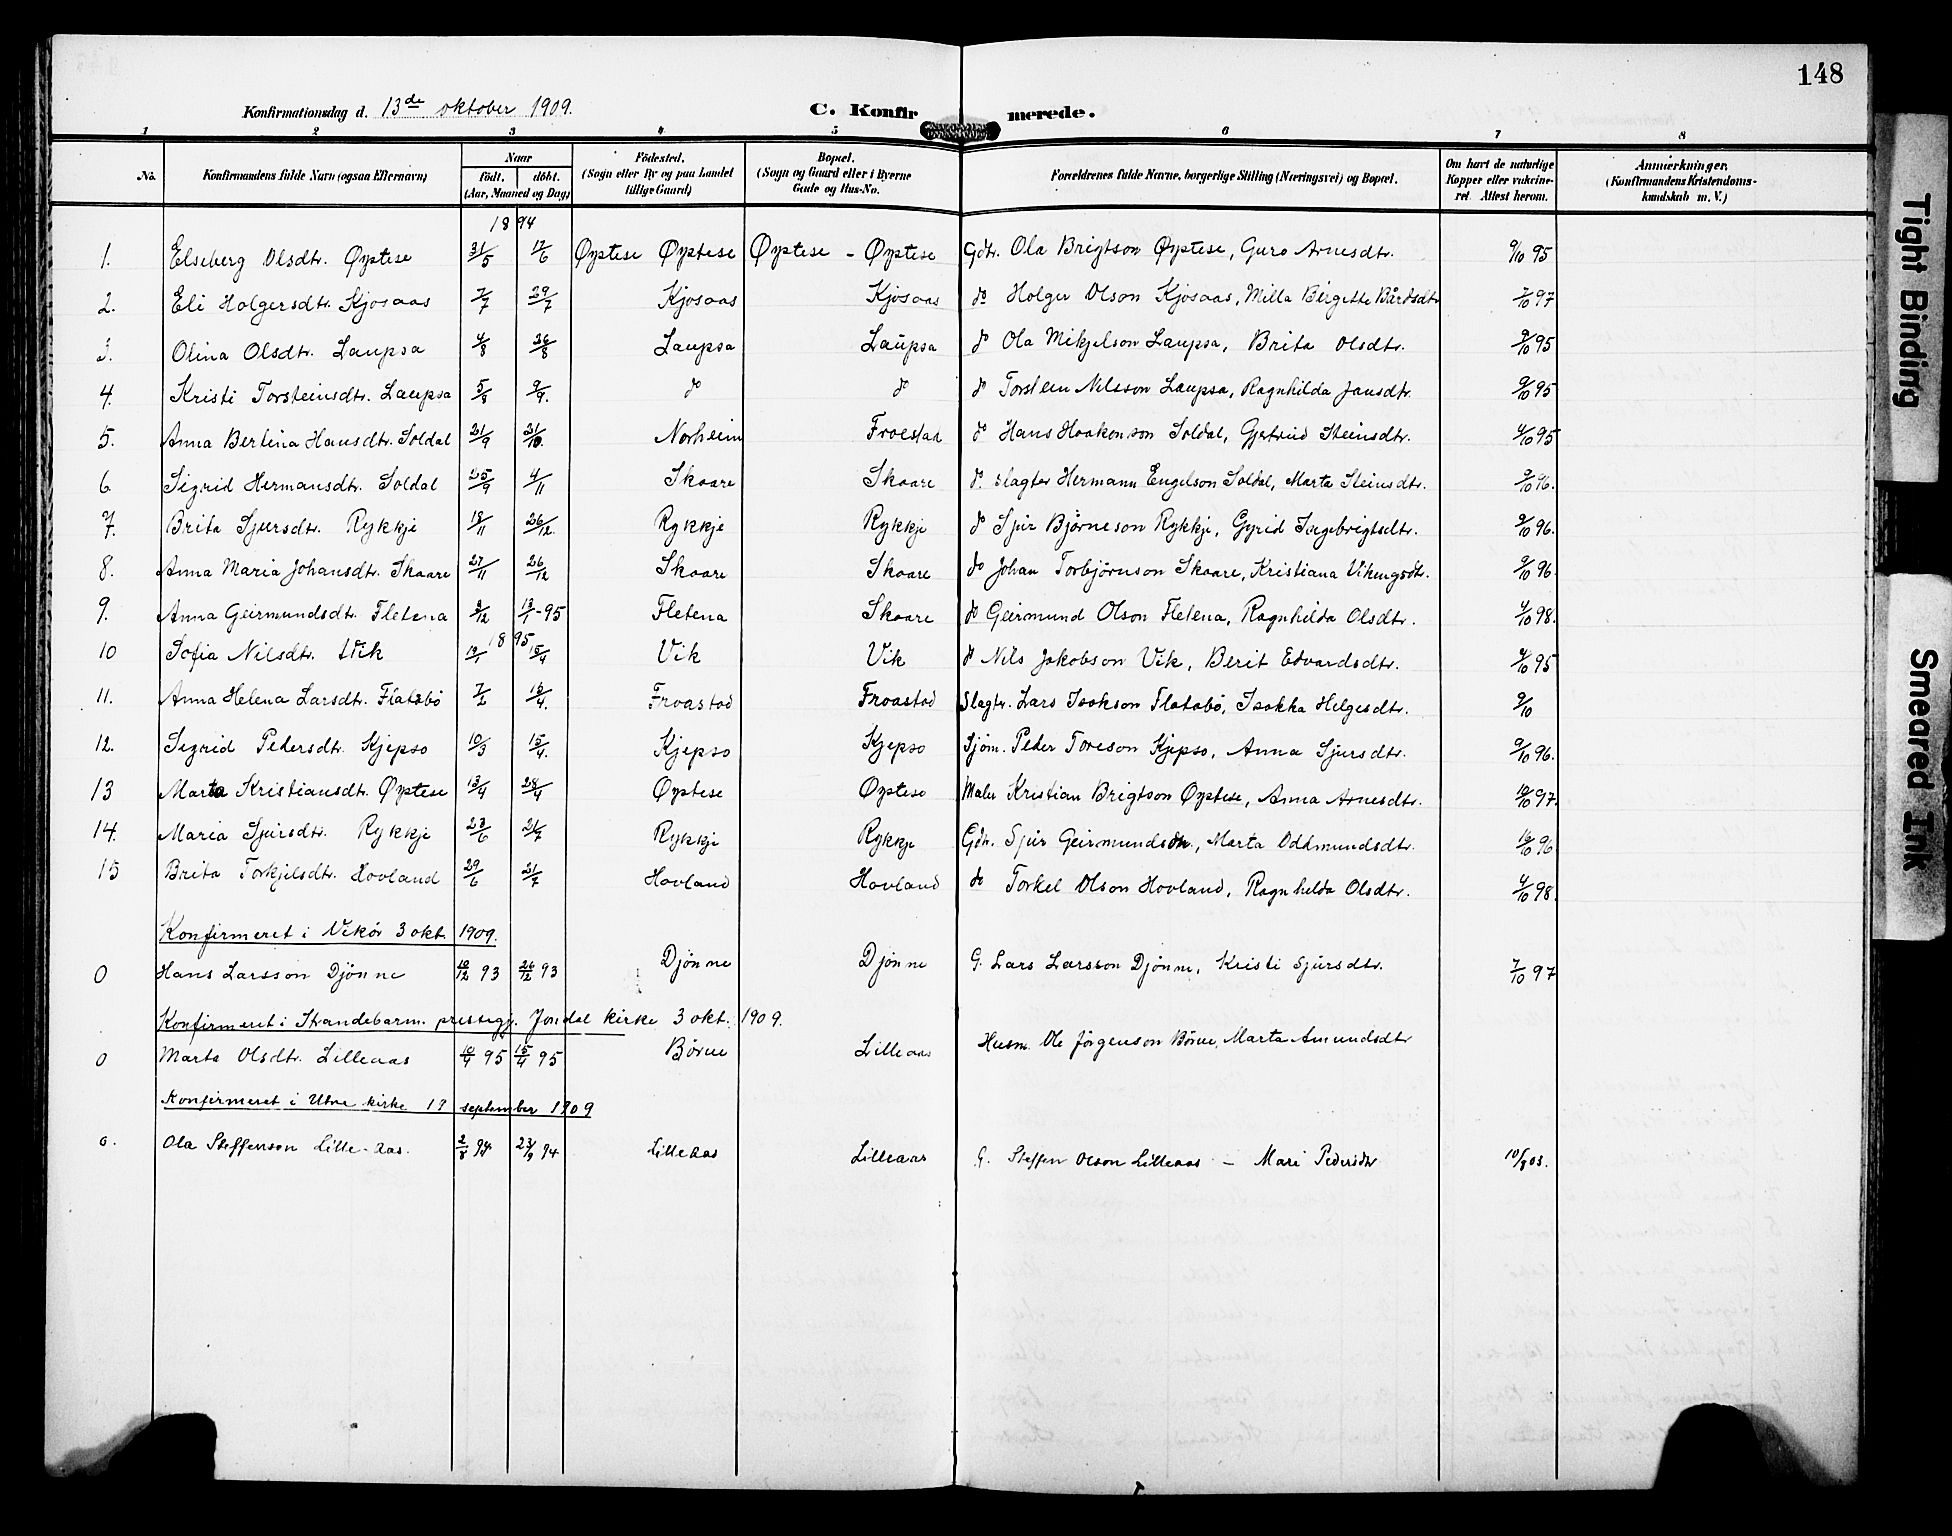 148
Konfirmationsdag d. 13de oktober 1909. C. Konfir merede.
1 2 3 4 5 6 7 8
No. Konfirmandens fulde Navn (ogsaa Efternavn) Naar født. døbt. (Aar, Maaned og Dag) Fødested. (Sogn eller By og paa Landet tillige Gaard) Bopæl. (Sogn og Gaard eller i Byerne Gade og Hus-No. Forældrenes fulde Navne, borgerlige Stilling (Næringsvei) og Bopæl. Om havt de naturlige Kopper eller vakcineret. Attest herom. Anmærkninger. (Konfirmandens Kristendomskundskab m. V.)
1894
1. Elseberg Olsdtr. Øystese 31/5 17/6 Øystese Øystese Øystese - Øystese Gdr. Ola Brigtson Øystese, Guro Arnesdtr. 9/10 95
2. Eli Holgersdtr. Kjosaas 7/7 29/7 Kjosaas Kjosaas do Holger Olson Kjosaas, Milla Birgitte Bårdsdtr 7/10 97
3. Olina Olsdtr. Laupsa 4/8 26/8 Laupsa Laupsa do Ola Mikjelson Laupsa, Brita Olsdtr. 9/10 95
4. Kristi Torsteinsdtr. Laupsa 5/8 9/9. do do do Torstein Nilsson Laupsa, Ragnhilda Jansdtr. 9/10 95
5. Anna Bertina Hansdtr. Soldal 21/9 21/10. Norheim Froestad do Hans Haakonson Soldal, Gjertrud Steinsdtr. 9/10 95
6. Sigrid Hermansdtr. Soldal 25/9 4/11 Skaare Skaare do. slagter Hermann Engelson Soldal, Marta Steinsdtr. 9/10 96.
7. Brita Sjursdtr. Rykkje 18/11 26/12. Rykkje Rykkje do Sjur Bjørneson Rykkje, Gyrid Ingebrigtsdtr. 9/10 96.
8. Anna Maria Johansdtr. Skaare 27/11 26/12 Skaare Skaare do Johan Torbjørnson Skaare, Kristiana Vikingsdtr. 9/10 96.
9. Anna Geirmundsdtr. Fletena 9/12 13/1-95 Fletena Skaare do Geirmund Olson Fletena, Ragnhilda Olsdtr. 9/10 98.
1895
10 Sofia Nilsdtr. Vik 19/1 15/4 Vik Vik do Nils Jakobson Vik, Berit Edvardsdtr. 9/10 95
11. Anna Helena Larsdtr. Flatabø 7/2 15/4. Froastad Froastad Slagtr. Lars Isakson Flatabø, Isakka Helgesdtr. 9/10
12. Sigrid Pedersdtr. Kjepso 10/3 15/4. Kjepso Kjepso Sjøm. Peder Toreson Kjepso, Anna Sjursdtr. 9/10 96.
13 Marta Kristiansdtr. Øystese 13/4 28/4 Øystese Øystese Maler Kristian Brigtson Øystese, Anna Arnesdtr. 10/10 97.
14. Maria Sjursdtr. Rykkje 23/6 21/7 Rykkje Rykkje Gdr. Sjur Geirmundsdn., Marta Oddmundsdtr. 16/10 96
15 Brita Torkjelsdtr. Hovland 29/6 21/7 Hovland Hovland do Torkel Olson Hovland, Ragnhilda Olsdtr. 9/10 98.
Konfirmeret i Vikør 3 okt. 1909.
0 Hans Larsson Djønne 10/12 93 26/12 93 Djønne Djønne G. Lars Larsson Djønne, Kristi Sjursdtr. 7/10 97
Konfirmeret i Strandebarm. prestegj. Jondal kirke 3 okt. 1909.
0 Marta Olsdtr. Lilleaas 10/4 95 15/4 95 Børve Lilleaas Husm. Ole Jørgenson Børve, Marta Amundsdtr
Konfirmeret i Utne kirke 19 september 1909
o. Ola Steffenson Lille-aas. 2/8 94 23/9 94 Lilleaas Lilleaas G. Steffen Olson Lilleaas - Mari Pedersdtr 10/8 03.
Tight Binding
Smeared Ink